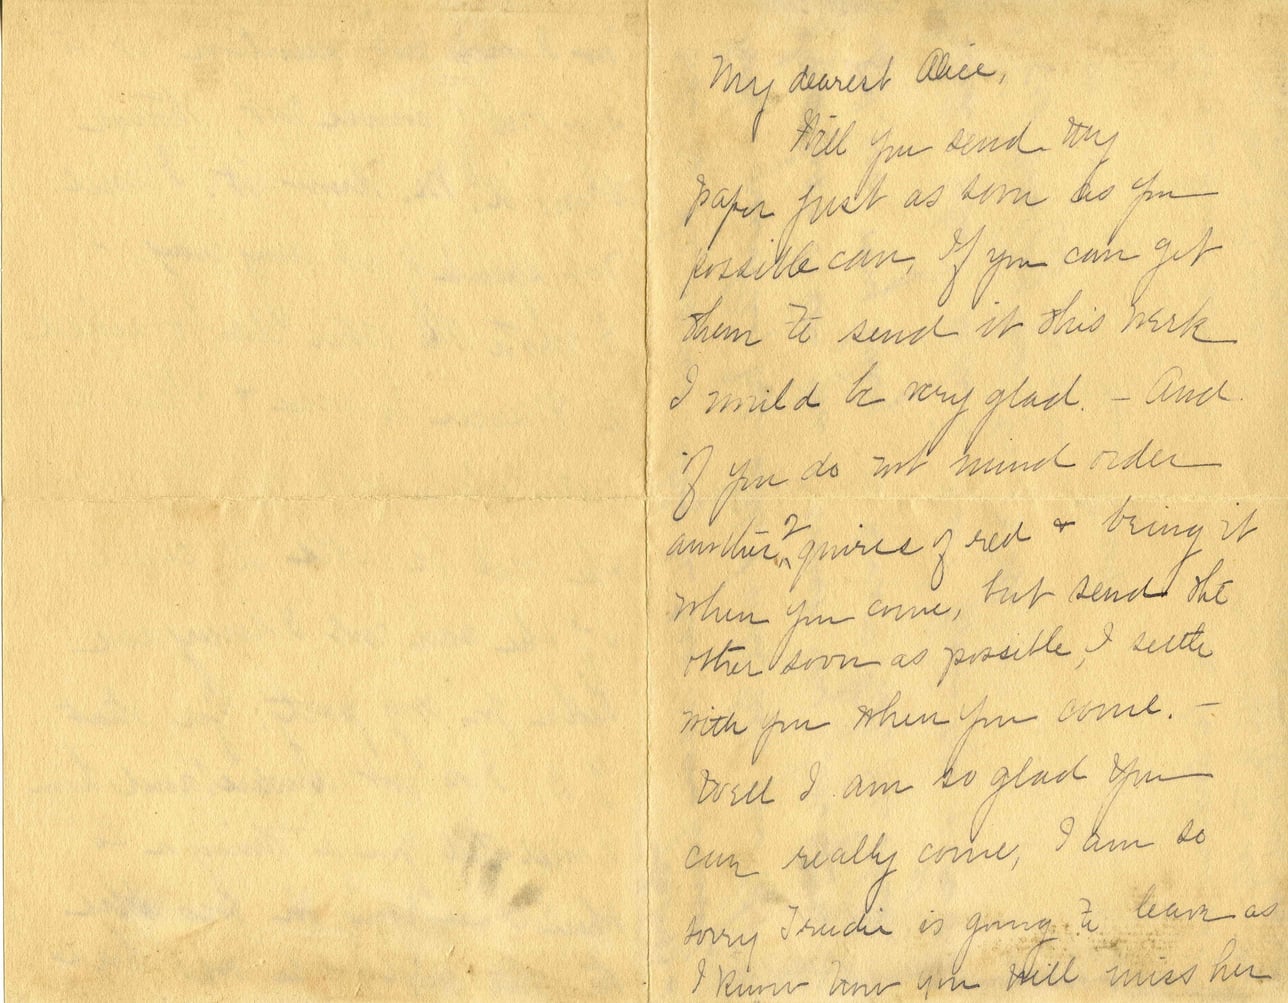 My dearest Alice,
Will you send my
paper just as soon as you
possible can, If you can get
them to send it this week
I would be very glad. - And
if you do not mind order
another 2 quires of red & bring it
when you come, but send the
other soon as possible, I settle
with you when you come. -
Well I am so glad you
can really come, I am so
sorry Trudie is going to leave as
I know how you will miss her